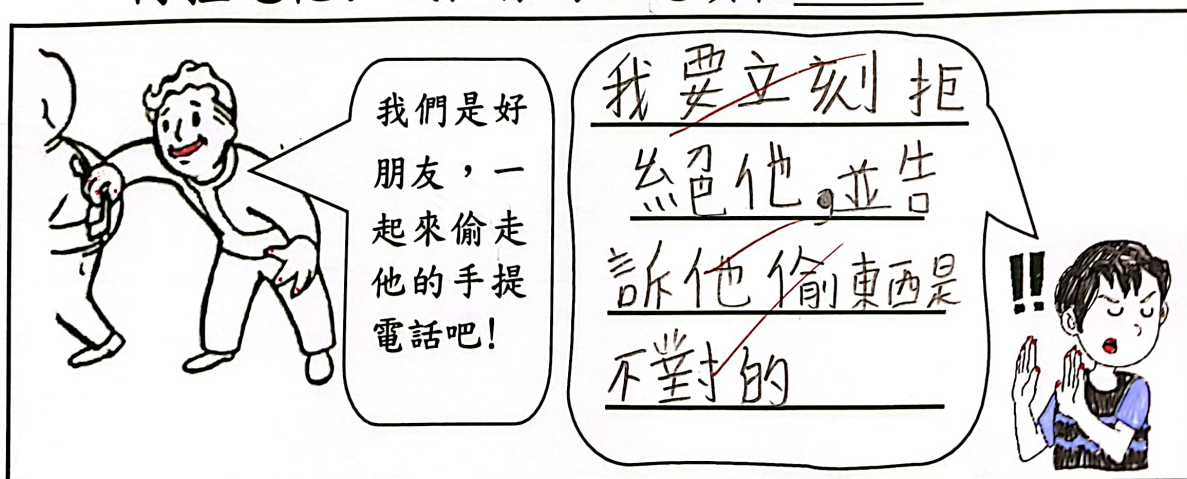 我們是好
朋友，一
起來偷走
他的手提
電話吧！
我要立刻拒
絕他，並告
訴他偷東西是
不對的
!!